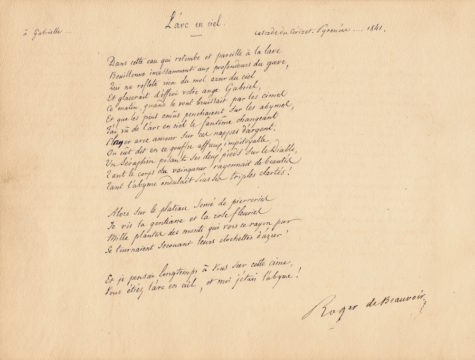 à Gabrielle ...
L'arc en ciel.
cascade du Cerizet. Pyrénées .... 1841.
Dans cette eau qui retombe et pareille à la lave
Bouillonne incessamment aux profondeurs du gave,
Qui ne reflète rien du mol azur du ciel
Et glacerait d'effroi votre ange Gabriel,
Ce matin, quand le vent bruissait par les cimes
Et que les pins penchaient sur les abymes
J'ai vu de l'arc en ciel le fantôme changeant
Nager avec amour sur ces nappes d'argent.
On eût dit en ce gouffre affreux, impitoyable
Un Séraphin posant ses deux pieds sur le Diable,
Tant le corps du vainqueur rayonnait de beautés
Tant l'abyme ondulait sous ses triples clartés!
Alors sur le plateau semé de pierreries
Je vis la gentiane et la rose fleuries
Mille plantes des monts qui vers ce rayon pur
Se tournaient secouant leurs clochettes d'azur!
Et je pensai longtemps à vous sur cette cime,
Vous étiez l'arc en ciel, et moi j'étais l'abyme!
Roger de Beauvoir